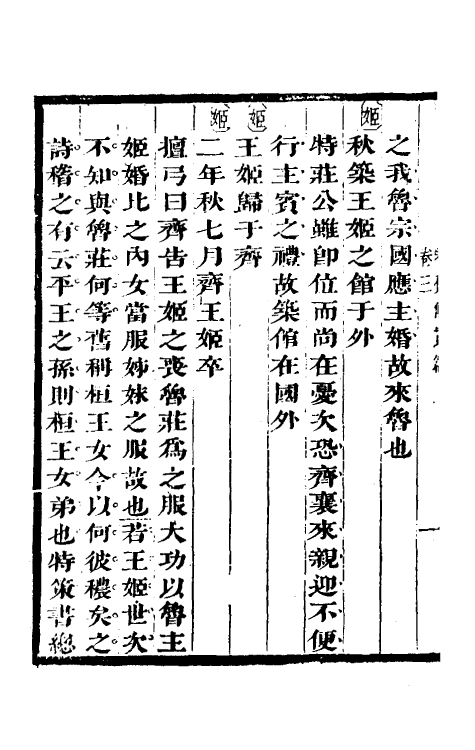 之我魯宗國應主婚故來魯也
姬
秋築王姬之館于外
特莊公雖卽位而尚在憂次恐齊襄來親迎不便
行主賓之禮故築館在國外
姬
王姬歸于齊
姬
二年秋七月齊王姬卒
檀弓曰齊告王姬之喪魯莊爲之服大功以魯主
姬婚比之內女當服姊妹之服故也若王姬世次
不知與魯莊何等舊稱桓王女今以何彼穠矣之
詩稽之有云平王之孫則桓王女弟也特策書總